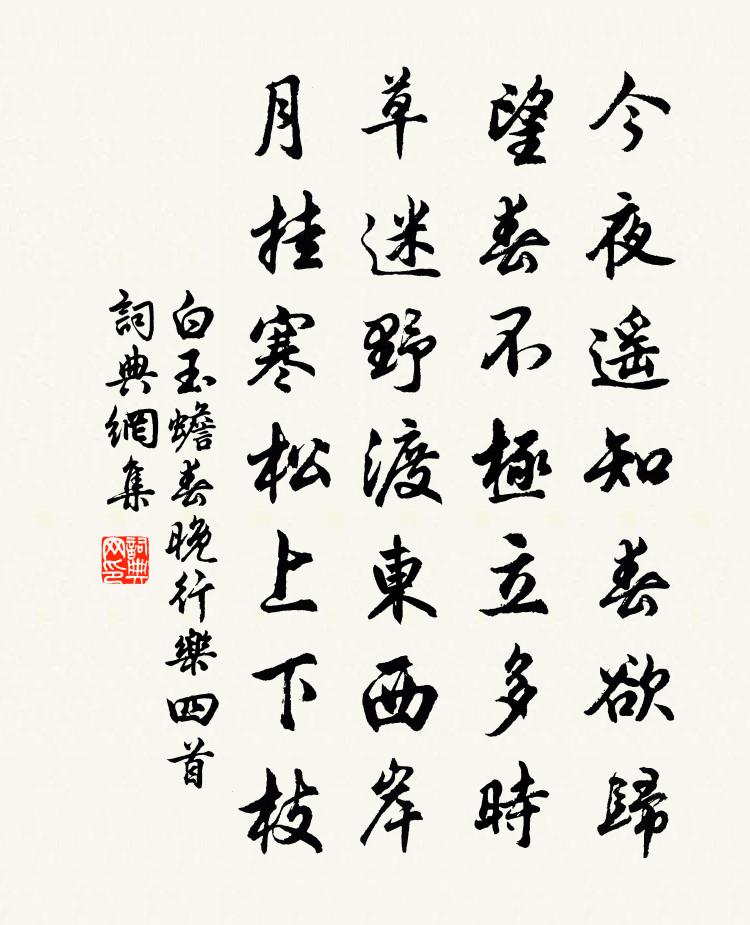 今夜遥知春欲歸
望春不極立多時
草迷野渡東西岸
月挂寒松上下枝
白玉蟾春晚行樂四首
詞典網集
詞典网印